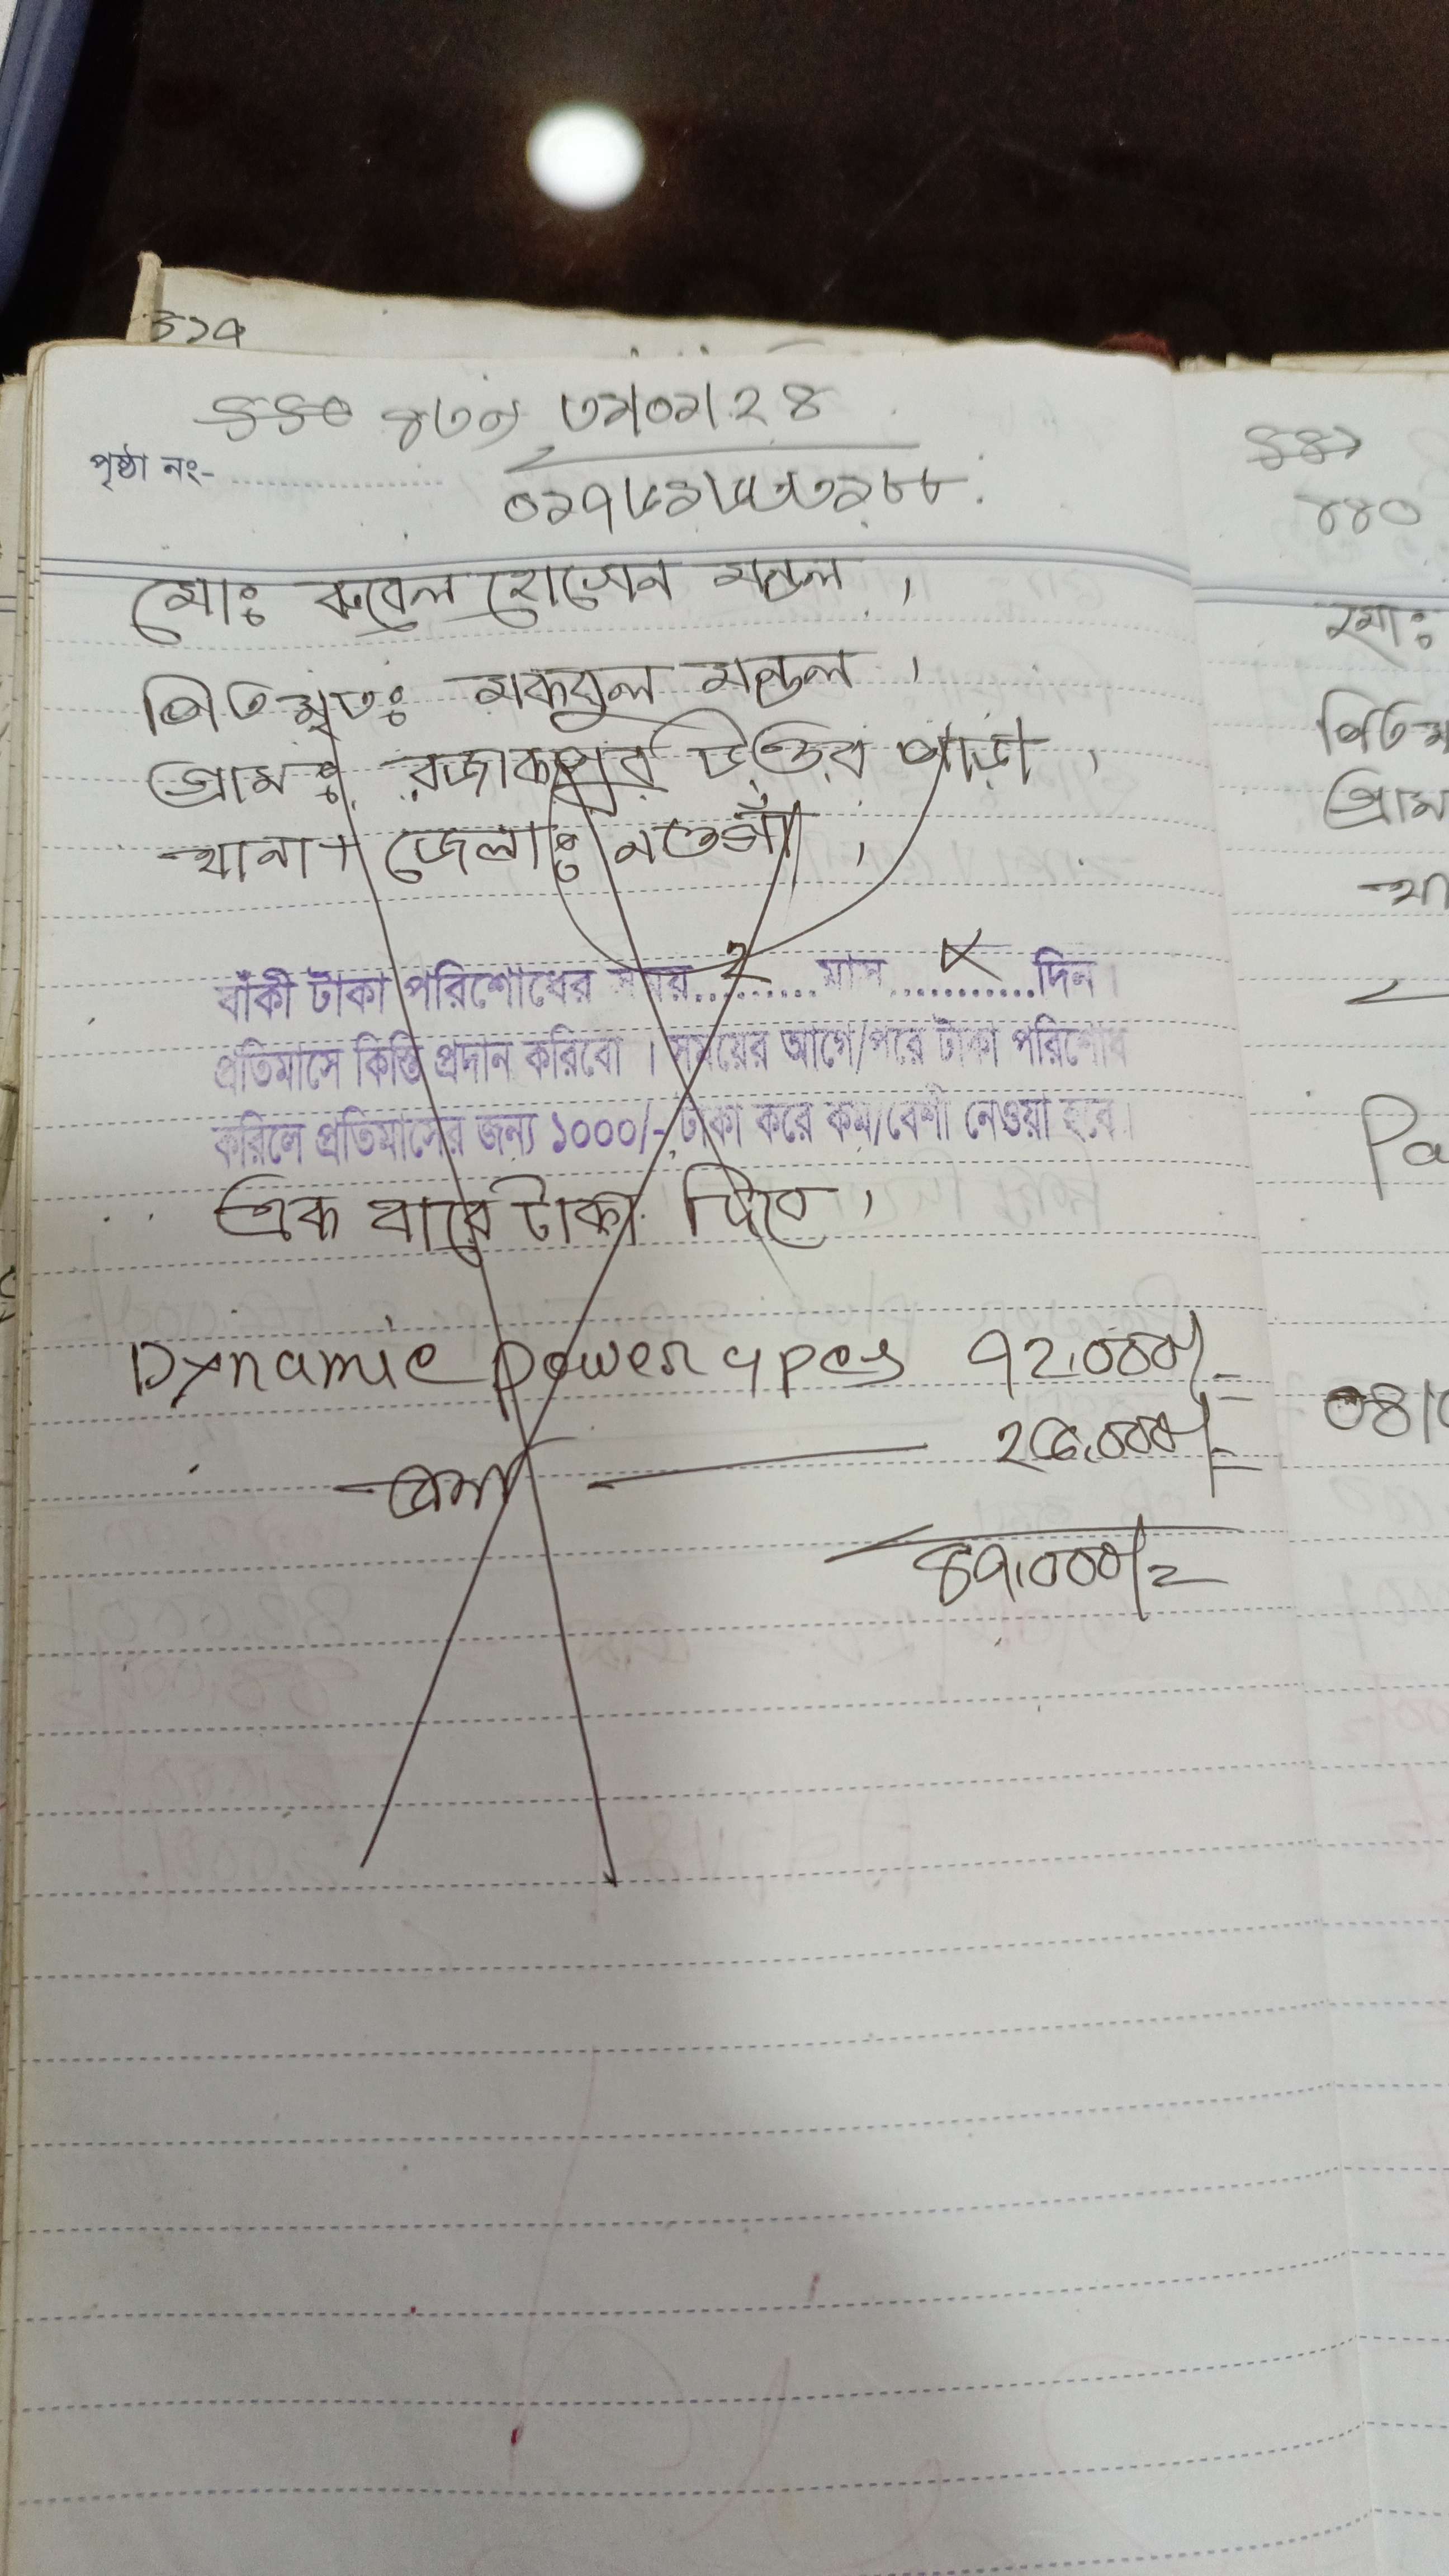 ৩১৭
৪৪০ ৪৩৯ ৩১/০১/২৪
পৃষ্ঠা নং-
মোঃ রুবেল হোসেন মন্ডল।
পিতামৃতঃ মকবুল মন্ডল।
গ্রামঃ রজাকপুর উত্তর পাড়া,
থানা+জেলাঃ নওগাঁ।
বাঁকী টাকা পরিশোধের সময়....২....মাস....×....দিন।
প্রতিমাসে কিস্তি প্রদান করিবো। সময়ের আগে/পরে টাকা পরিশোধ
করিলে প্রতিমাসের জন্য ১০০০/- টাকা করে কম/বেশী নেওয়া হবে।
এক বারে টাকা দিবে।
Dynamic power 4 pes ৭২,০০০/=
জমা — ২৫,০০০/=
৪৭,০০০/=
৪৪১
৪৪০
মোঃ
পিতামৃ
গ্রাম
থা
Pa